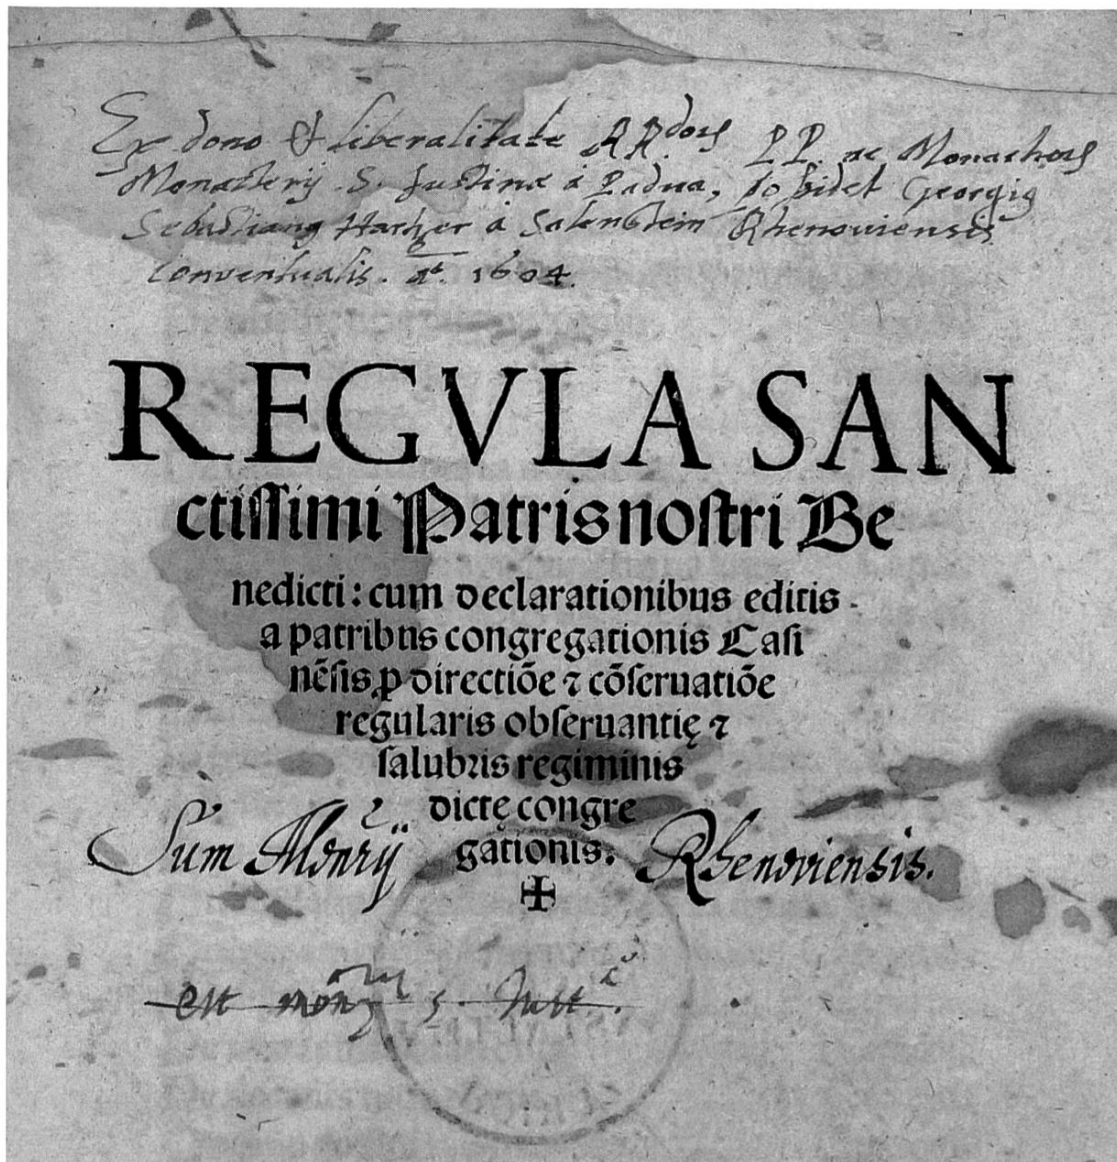 Ex dono & liberalitate RR.dorum PP. ac Monachorum
Monasterij S. Justinæ à Padua, possidet Georgius
Sebastianus Hartzer à Salenstein Rhenoviensis
Conventualis. Aº. 1604.
REGVLA SAN
ctiſſimi Patris noſtri Be
nedicti: cum declarationibus editis
a patribus congregationis Caſi
nēſis ꝓ directiōe ⁊ cōſeruatiōe
regularis obſeruantię ⁊
ſalubris regiminis
dictę congre
gationis.
Sum Monrij Rhenoviensis.
est s. Just